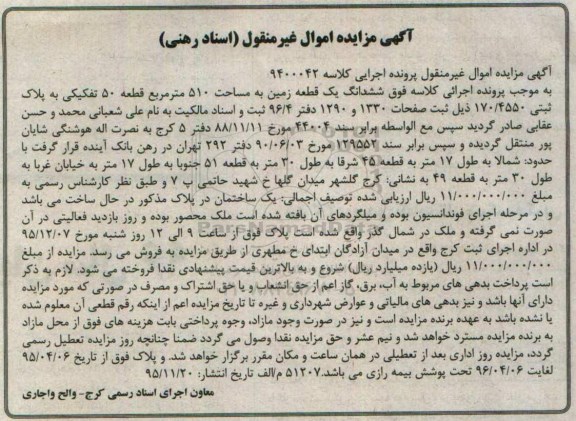 آگهی مزایده اموال غیرمنقول (اسناد رهنی)
آگهی مزایده اموال غیرمنقول پرونده اجرایی کلاسه ۹۴۰۰۰۴۲
به موجب پرونده اجرائی کلاسه فوق ششدانگ یک قطعه زمین به مساحت ۵۱۰ مترمربع قطعه ۵۰ تفکیکی به پلاک
ثبتی ۱۷۰/۴۵۵۰ ذیل ثبت صفحات ۱۳۳۰ و ۱۲۹۰ دفتر ۹۶/۴ ثبت و اسناد مالکیت به نام علی شعبانی محمد و حسن
عقابی صادر گردید سپس مع الواسطه برابر سند ۴۴۰۰۴ مورخ ۸۸/۱۱/۱۱ دفتر ۵ کرج به نصرت اله هوشنگی شایان
پور منتقل گردیده و سپس برابر سند ۱۲۹۵۵۲ مورخ ۹۰/۰۶/۰۳ دفتر ۲۹۳ تهران در رهن بانک آینده قرار گرفت با
حدود: شمالا به طول ۱۷ متر به قطعه ۴۵ شرقا به طول ۳۰ متر به قطعه ۵۱ جنوبا به طول ۱۷ متر به خیابان غربا به
طول ۳۰ متر به قطعه ۴۹ به نشانی: کرج گلشهر میدان گلها خ شهید حاتمی پ ۷ و طبق نظر کارشناس رسمی به
مبلغ ۱۱/۰۰۰/۰۰۰/۰۰۰ ریال ارزیابی شده توصیف اجمالی: یک ساختمان در پلاک مذکور در حال ساخت می باشد
و در مرحله اجرای فونداسیون بوده و میلگردهای آن بافته شده است ملک محصور بوده و روز بازدید فعالیتی در آن
صورت نمی گرفته و ملک در شمال گذر واقع شده است پلاک فوق از ساعت ۹ الی ۱۲ روز شنبه مورخ ۹۵/۱۲/۰۷
در اداره اجرای ثبت کرج واقع در میدان آزادگان ابتدای خ مطهری از طریق مزایده به فروش می رسد. مزایده از مبلغ
۱۱/۰۰۰/۰۰۰/۰۰۰ ریال (یازده میلیارد ریال) شروع و به بالاترین قیمت پیشنهادی نقدا فروخته می شود. لازم به ذکر
است پرداخت بدهی های مربوط به آب، برق، گاز اعم از حق انشعاب و یا حق اشتراک و مصرف در صورتی که مورد مزایده
دارای آنها باشد و نیز بدهی های مالیاتی و عوارض شهرداری و غیره تا تاریخ مزایده اعم از اینکه رقم قطعی آن معلوم شده
یا نشده باشد به عهده برنده مزایده است و نیز در صورت وجود مازاد، وجوه پرداختی بابت هزینه های فوق از محل مازاد
به برنده مزایده مسترد خواهد شد و نیم عشر و حق مزایده نقدا وصول می گردد ضمنا چنانچه روز مزایده تعطیل رسمی
گردد، مزایده روز اداری بعد از تعطیلی در همان ساعت و مکان مقرر برگزار خواهد شد. و پلاک فوق از تاریخ ۹۵/۰۴/۰۶
لغایت ۹۶/۰۴/۰۶ تحت پوشش بیمه رازی می باشد. ۵۱۲۰۷ م/الف تاریخ انتشار: ۹۵/۱۱/۲۰
معاون اجرای اسناد رسمی کرج- والح واجاری